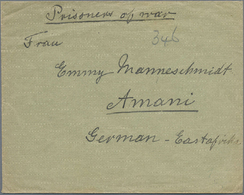 Prisoners of war
346
Frau
Emmy Manneschmidt
Amani
German - Eastafrika